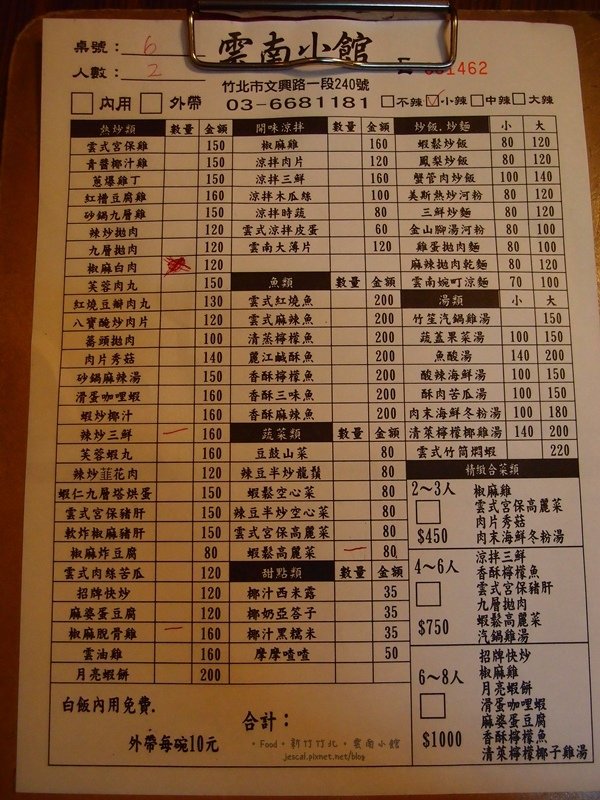 桌號: 6
人數: 2
雲南小館
竹北市文興路一段240號
內用 外帶 03-6681181 不辣 小辣 中辣 大辣
熱炒類 數量 金額
雲式宮保雞 150
青醬椰汁雞 150
蔥爆雞丁 150
紅糟豆腐雞 160
砂鍋九層雞 150
辣炒拋肉 120
九層拋肉 120
椒麻白肉 120
芙蓉肉丸 150
紅燒豆瓣肉丸 130
八寶醃炒肉片 120
蕎頭拋肉 100
肉片秀菇 140
砂鍋麻辣湯 150
滑蛋咖哩蝦 160
蝦炒椰汁 160
辣炒三鮮 一 160
芙蓉蝦丸 160
辣炒韮花肉 120
蝦仁九層塔烘蛋 150
雲式宮保豬肝 150
軟炸椒麻豬肝 150
椒麻炸豆腐 80
雲式肉絲苦瓜 120
招牌快炒 120
麻婆蛋豆腐 120
椒麻脫骨雞 一 160
雲油雞 160
月亮蝦餅 200
開味涼拌 數量 金額
椒麻雞 160
涼拌肉片 120
涼拌三鮮 160
涼拌木瓜絲 100
涼拌時蔬 80
雲式涼拌皮蛋 60
雲南大薄片 120
魚類 數量 金額
雲式紅燒魚 200
雲式麻辣魚 200
清蒸檸檬魚 200
麗江鹹酥魚 200
香酥檸檬魚 200
香酥三味魚 200
香酥麻辣魚 200
蔬菜類 數量 金額
豆鼓山菜 80
辣豆半炒龍鬚 80
蝦鬆空心菜 80
辣豆半炒空心菜 80
雲式宮保高麗菜 80
蝦鬆高麗菜 一 80
甜點類 數量 金額
椰汁西米露 35
椰奶亞答子 35
椰汁黑糯米 35
摩摩喳喳 50
炒飯.炒麵 小 大
蝦鬆炒飯 80 120
鳳梨炒飯 80 120
蟹管肉炒飯 100 140
美斯熱炒河粉 80 120
三鮮炒麵 80 120
金山腳湯河粉 80 100
雞蛋拋肉麵 80 100
麻辣拋肉乾麵 80 120
雲南婉町涼麵 70 100
湯類 小 大
竹笙汽鍋雞湯 150
蔬蓋果菜湯 100 150
魚酸湯 140 200
酸辣海鮮湯 100 150
酥肉苦瓜湯 100 150
肉末海鮮冬粉湯 100 180
清萊檸檬椰雞湯 140 200
雲式竹筒燜蝦 220
精緻合菜類
2~3人
$450
椒麻雞
雲式宮保高麗菜
肉片秀菇
肉末海鮮冬粉湯
4~6人
$750
涼拌三鮮
香酥檸檬魚
雲式宮保豬肝
九層拋肉
蝦鬆高麗菜
汽鍋雞湯
6~8人
$1000
招牌快炒
椒麻雞
月亮蝦餅
滑蛋咖哩蝦
麻婆蛋豆腐
香酥檸檬魚
清萊檸檬椰子雞湯
白飯內用免費.
外帶每碗10元
合計:
• Food • 新竹竹北 • 雲南小館
jescal.pixnet.net/blog